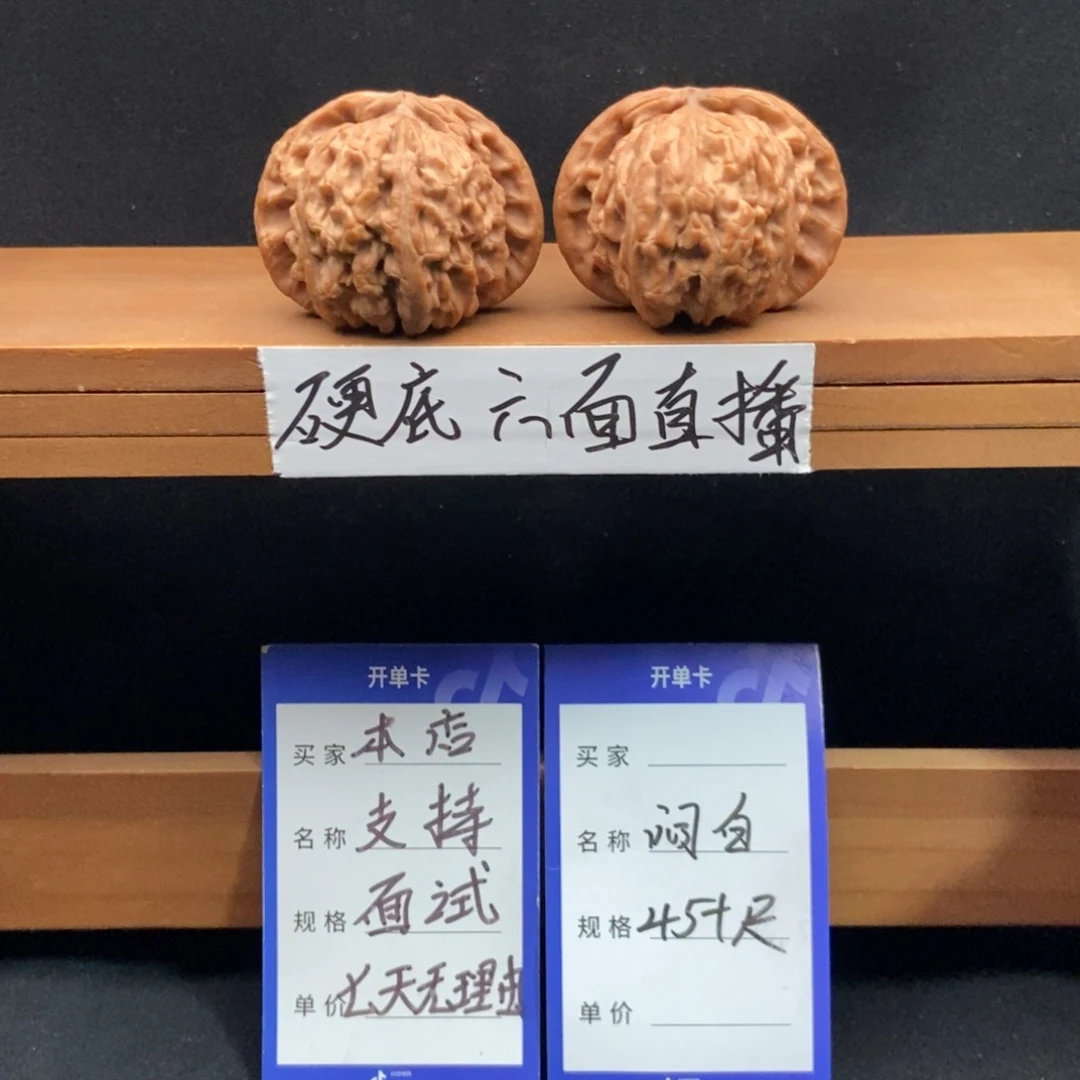 硬底 六面直播
开单卡
买家 本店
名称 支持
规格 面试
单价 七天无理由
开单卡
买家
名称 闷自
规格 45+尺
单价